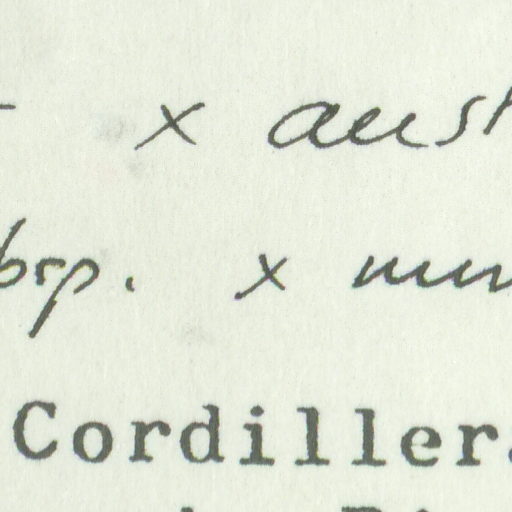 x aust
brp. x mun
Cordillera